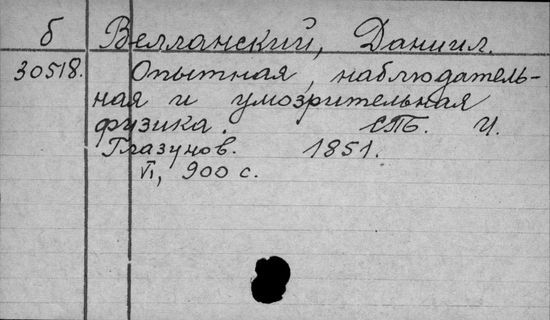 б Велланский, Даниил.
30518. Опытная, наблюдатель-
ная и умозрительная
физика. СПБ. И.
Глазунов. 1851.
VI, 900 с.